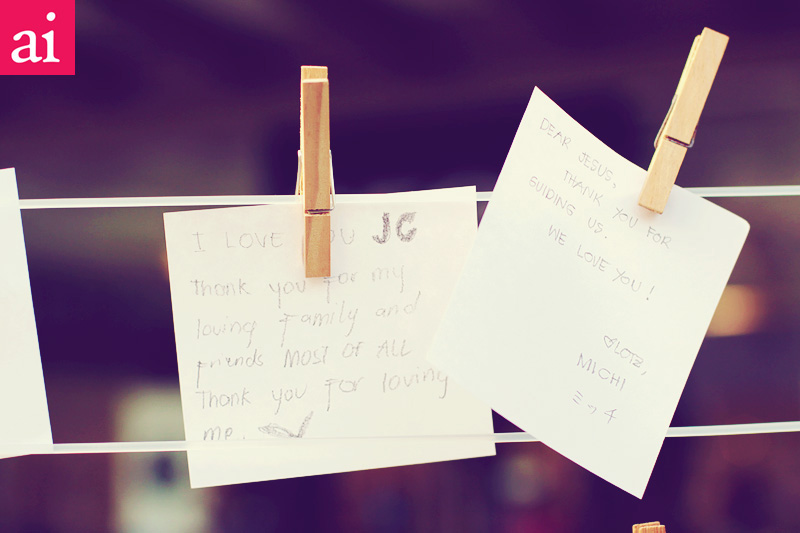 ai
I LOVE YOU JC
Thank you for my
loving family and
friends MOST OF ALL
Thank you for loving
me.
DEAR JESUS,
THANK YOU FOR
GUIDING US.
WE LOVE YOU!
MICHI
ミッチ